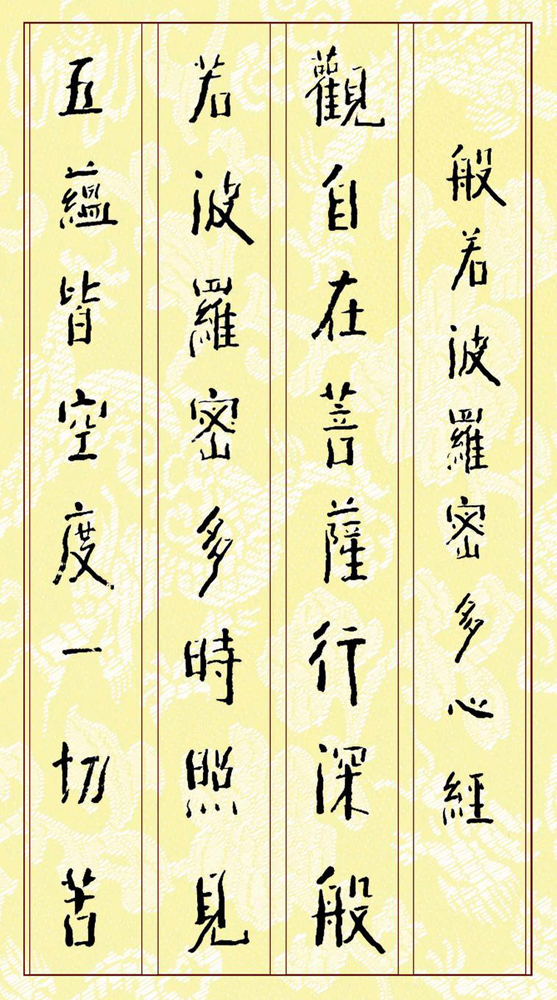 般若波羅密多心經
觀自在菩薩行深般
若波羅密多時照見
五蘊皆空度一切苦